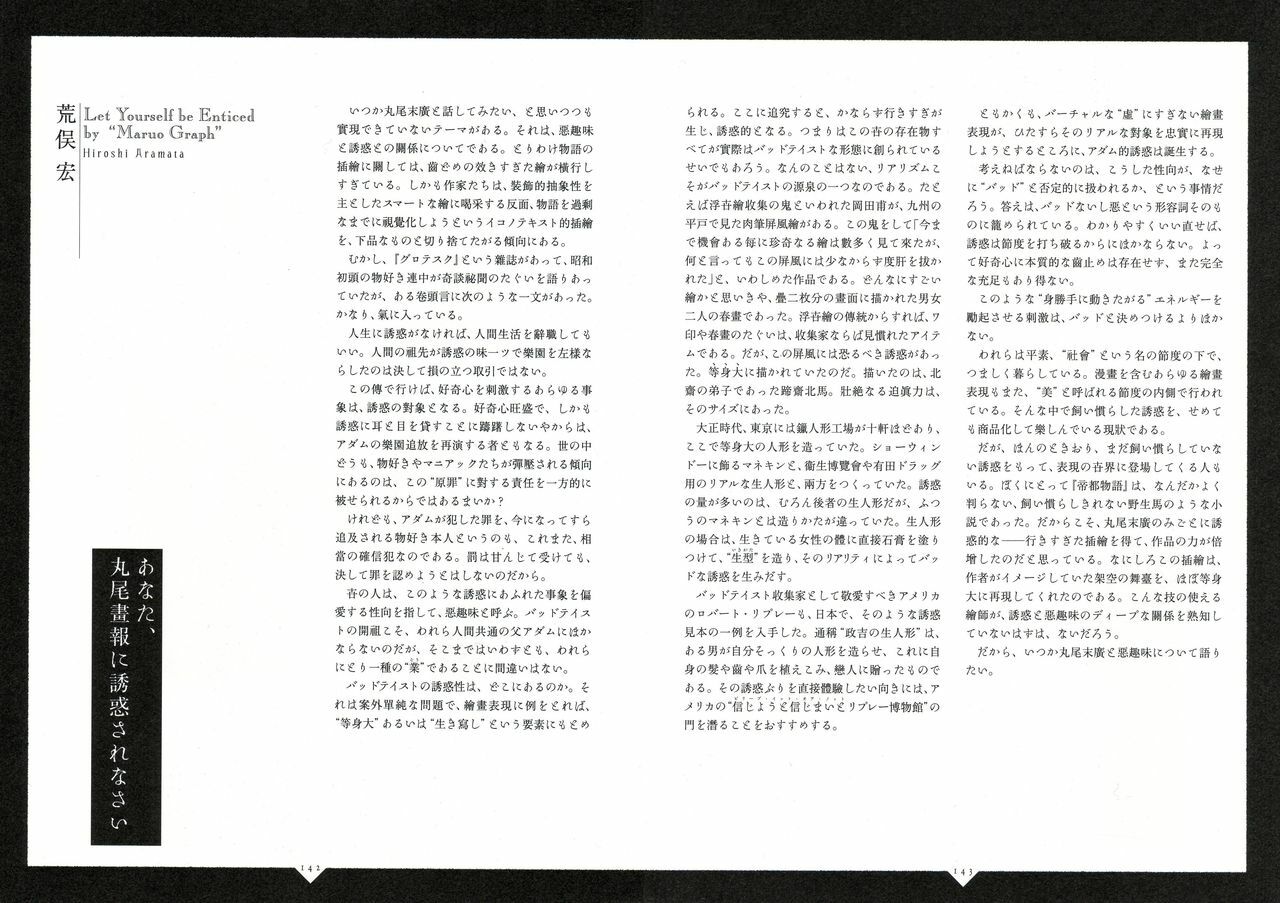 荒俣 宏
Let Yourself be Enticed
by “Maruo Graph”
Hiroshi Aramata
あなた、
丸尾畫報に誘惑されなさい
いつか丸尾末廣と話してみたい、と思いつつも
實現できていないテーマがある。それは、悪趣味
と誘惑との關係についてである。とりわけ物語の
插繪に關しては、齒どめの效きすぎた繪が橫行し
すぎている。しかも作家たちは、裝飾的抽象性を
主としたスマートな繪に喝采する反面、物語を過剩
なまでに視覺化しようというイコノテキスト的插繪
を、下品なものと切り捨てたがる傾向にある。
むかし、『グロテスク』という雜誌があって、昭和
初頭の物好き連中が奇談祕聞のたぐいを語りあっ
ていたが、ある卷頭言に次のような一文があった。
かなり、氣に入っている。
人生に誘惑がなければ、人間生活を辭職しても
いい。人間の祖先が誘惑の味一ツで樂園を左樣な
らしたのは決して損の立つ取引ではない。
この傳で行けば、好奇心を刺激するあらゆる事
象は、誘惑の對象となる。好奇心旺盛で、しかも
誘惑に耳と目を貸すことに躊躇しないやからは、
アダムの樂園追放を再演する者ともなる。世の中
どうも、物好きやマニアックたちが彈壓される傾向
にあるのは、この“原罪”に對する責任を一方的に
被せられるからではあるまいか?
けれども、アダムが犯した罪を、今になってすら
追及される物好き本人というのも、これまた、相
當の確信犯なのである。罰は甘んじて受けても、
決して罪を認めようとはしないのだから。
杏の人は、このような誘惑にあふれた事象を偏
愛する性向を指して、悪趣味と呼ぶ。バッドテイス
トの開祖こそ、われら人間共通の父アダムにほか
ならないのだが、そこまではいわずとも、われら
にとり一種の“業”であることに間違いはない。
バッドテイストの誘惑性は、どこにあるのか。そ
れは案外單純な問題で、繪畫表現に例をとれば、
“等身大”あるいは“生き寫し”という要素にもとめ
142
られる。ここに追究すると、かならず行きすぎが
生じ、誘惑的となる。つまりはこの杏の存在物す
べてが實際はバッドテイストな形態に創られている
せいでもあろう。なんのことはない、リアリズムこ
そがバッドテイストの源泉の一つなのである。たと
えば浮杏繪收集の鬼といわれた岡田甫が、九州の
平戸で見た肉筆屏風繪がある。この鬼をして「今ま
で機會ある毎に珍奇なる繪は數多く見て來たが、
何と言ってもこの屏風には少なからず度肝を拔か
れた」と、いわしめた作品である。どんなにすごい
繪かと思いきや、疊二枚分の畫面に描かれた男女
二人の春畫であった。浮杏繪の傳統からすれば、ワ
印や春畫のたぐいは、收集家ならば見慣れたアイテ
ムである。だが、この屏風には恐るべき誘惑があっ
た。等身大に描かれていたのだ。描いたのは、北
齋の弟子であった蹄齋北馬。壯絶なる迫眞力は、
そのサイズにあった。
大正時代、東京には鑞人形工場が十軒ほどあり、
ここで等身大の人形を造っていた。ショーウィン
ドーに飾るマネキンと、衞生博覽會や有田ドラッグ
用のリアルな生人形と、兩方をつくっていた。誘惑
の量が多いのは、むろん後者の生人形だが、ふつ
うのマネキンとは造りかたが違っていた。生人形
の場合は、生きている女性の體に直接石膏を塗り
つけて、“生型”を造り、そのリアリティによってバッ
ドな誘惑を生みだす。
バッドテイスト收集家として敬愛すべきアメリカ
のロバート・リプレーも、日本で、そのような誘惑
見本の一例を入手した。通稱“政吉の生人形”は、
ある男が自分そっくりの人形を造らせ、これに自
身の髮や齒や爪を植えこみ、戀人に贈ったもので
ある。その誘惑ぶりを直接體驗したい向きには、ア
メリカの“信じようと信じまいとリプレー博物館”の
門を潛ることをおすすめする。
ともかくも、バーチャルな“虛”にすぎない繪畫
表現が、ひたすらそのリアルな對象を忠實に再現
しようとするところに、アダム的誘惑は誕生する。
考えねばならないのは、こうした性向が、なぜ
に“バッド”と否定的に扱われるか、という事情だ
ろう。答えは、バッドないし悪という形容詞そのも
のに籠められている。わかりやすくいい直せば、
誘惑は節度を打ち破るからにほかならない。よっ
て好奇心に本質的な齒止めは存在せず、また完全
な充足もあり得ない。
このような“身勝手に動きたがる”エネルギーを
勵起させる刺激は、バッドと決めつけるよりほか
ない。
われらは平素、“社會”という名の節度の下で、
つましく暮らしている。漫畫を含むあらゆる繪畫
表現もまた、“美”と呼ばれる節度の内側で行われ
ている。そんな中で飼い慣らした誘惑を、せめて
も商品化して樂しんでいる現狀である。
だが、ほんのときおり、まだ飼い慣らしていな
い誘惑をもって、表現の杏界に登場してくる人も
いる。ぼくにとって『帝都物語』は、なんだかよく
判らない、飼い慣らしきれない野生馬のような小
說であった。だからこそ、丸尾末廣のみごとに誘
惑的な――行きすぎた插繪を得て、作品の力が倍
增したのだと思っている。なにしろこの插繪は、
作者がイメージしていた架空の舞臺を、ほぼ等身
大に再現してくれたのである。こんな技の使える
繪師が、誘惑と悪趣味のディープな關係を熟知し
ていないはずは、ないだろう。
だから、いつか丸尾末廣と悪趣味について語り
たい。
143